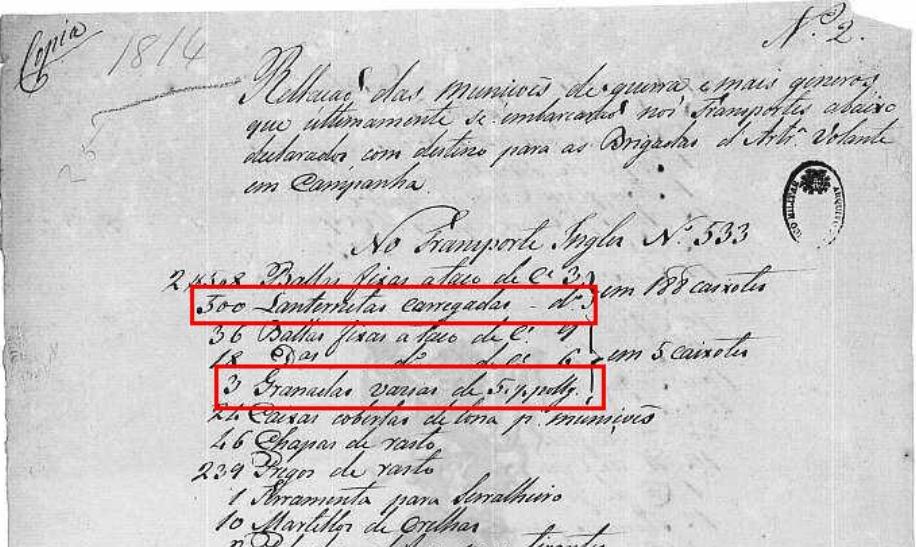 Copia
1814
Nº 2.
Rellacaõ das municoēs de guerra e mais generos,
que ultimamente se embarcaraõ nos Transportes abaixo
declarados com destino para as Brigadas d'Artrª Volante
em Campanha.
No Transporte Ingles Nº 533
Ballas fixas a taco de Cᵉ 3
500 Lanternetas carregadas - dº 3 em 188 caixotes
36 Ballas fixas a taco de Cᵉ 9
18 Das dº de Cᵉ 6 em 5 caixotes
3 Granadas vazias de
24 Caixas cobertas de lona pª municoēs
46 Chapas de rasto
239 Pregos de rasto
1 Ferramenta para Serralheiro
10 Martellos de Orelhas
tirantes